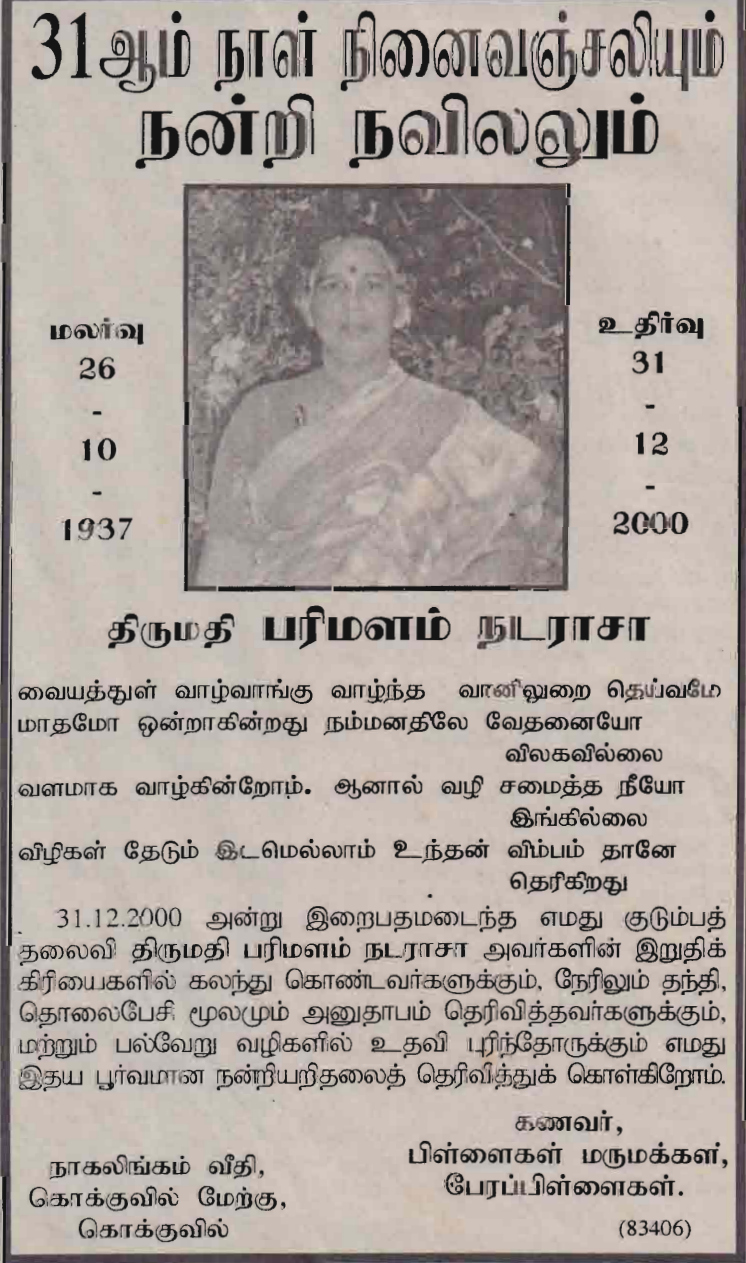 31ஆம் நாள் நினைவஞ்சலியும்
நன்றி நவிலலும்
மலர்வு
26
-
10
-
1937
உதிர்வு
31
-
12
-
2000
திருமதி பரிமளம் நடராசா
வையத்துள் வாழ்வாங்கு வாழ்ந்த வானிலுறை தெய்வமே
மாதமோ ஒன்றாகின்றது நம்மனதிலே வேதனையோ
விலகவில்லை
வளமாக வாழ்கின்றோம். ஆனால் வழி சமைத்த நீயோ
இங்கில்லை
விழிகள் தேடும் இடமெல்லாம் உந்தன் விம்பம் தானே
தெரிகிறது
31.12.2000 அன்று இறைபதமடைந்த எமது குடும்பத்
தலைவி திருமதி பரிமளம் நடராசா அவர்களின் இறுதிக்
கிரியைகளில் கலந்து கொண்டவர்களுக்கும், நேரிலும் தந்தி,
தொலைபேசி மூலமும் அனுதாபம் தெரிவித்தவர்களுக்கும்,
மற்றும் பல்வேறு வழிகளில் உதவி புரிந்தோருக்கும் எமது
இதய பூர்வமான நன்றியறிதலைத் தெரிவித்துக் கொள்கிறோம்.
கணவர்,
பிள்ளைகள் மருமக்கள்,
பேரப்பிள்ளைகள்.
நாகலிங்கம் வீதி,
கொக்குவில் மேற்கு,
கொக்குவில்
(83406)